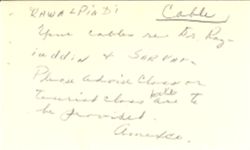 RAWALPINDI Cable
Your cables re Dr. Raz-
iuddin & SARWAR
Please advise class or
tourist class are to
be provided.
Amexco.